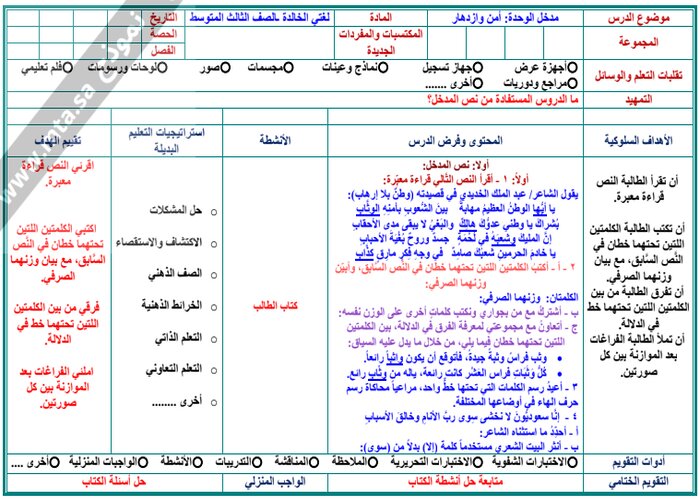 موضوع الدرس
مدخل الوحدة: أمن وازدهار
المادة
لغتي الخالدة .الصف الثالث المتوسط
التاريخ
المجموعة
المكتسبات والمفردات الجديدة
الحصة
الفصل
تقنيات التعلم والوسائل
أجهزة عرض
جهاز تسجيل
نماذج وعينات
مجسمات
صور
لوحات ورسومات
فلم تعليمي
مراجع ودوريات
أخرى .......
التمهيد
ما الدروس المستفادة من نص المدخل؟
الأهداف السلوكية
المحتوى وفرض الدرس
الأنشطة
استراتيجيات التعليم البديلة
تقييم الهدف
أن تقرأ الطالبة النص
قراءة معبرة.
أن تكتب الطالبة الكلمتين
اللتين تحتهما خطان في
النص السابق، مع بيان
وزنهما الصرفي.
أن تفرق الطالبة من بين
الكلمتين اللتين تحتهما خط
في الدلالة.
أن تملأ الطالبة الفراغات
بعد الموازنة بين كل
صورتين.
أولا: نص المدخل:
أولاً: ١ - أقرأ النص التالي قراءة معبّرة:
يقول الشاعر/ عبد الملك الخديدي في قصيدته (وطنٌ بلا إرهاب):
يا أيُّها الوطنُ العظيمُ مهابةً بين الشُّعوبِ بأمنِهِ الوثّاب
بُشراكَ يا وطني عدوُّكَ هالكٌ والبَغْيُ لا يبقى مدى الأحقاب
إنَّ المليكَ وشعبَهُ في لُحْمَةٍ جسدٌ وروحٌ بُغْيَةُ الأحباب
يا خادمَ الحرمينِ شعبُكَ صامِدٌ في وجهِ فِكرٍ مارقٍ كذّاب
٢ - أ - أكتبُ الكلمتين اللتين تحتهما خطان في النص السابق، وأبيّن
وزنهما الصرفي:
الكلمتان: وزنهما الصرفي:
ب - أشتركُ مع من بجواري ونكتب كلماتٍ أخرى على الوزن نفسه:
ج - أتعاونُ مع مجموعتي لمعرفة الفرق في الدلالة، بين الكلمتين
اللتين تحتهما خطان فيما يلي، من خلال ما يدل عليه السياق:
وثب فراسٌ وثبةً جيدةً، فأتوقع أن يكون واثباً رائعاً.
كلُّ وثباتِ فراسِ العَشْر كانت رائعة، ياله من وثّاب رائع.
٣ - أعيدُ رسم الكلمات التي تحتها خط واحد، مراعياً محاكاة رسم
حرف الهاء في أوضاعها المختلفة.
٤ - إنَّا سعوديُّون لا نخشى سوى ربِّ الأنامِ وخالقِ الأسباب
أ - أحدِّدُ ما استثناه الشاعر:
ب - أنثر البيت الشعري مستخدماً كلمة (إلا) بدلاً من (سوى):
كتاب الطالب
حل المشكلات
الاكتشاف والاستقصاء
الصف الذهني
الخرائط الذهنية
التعلم الذاتي
التعلم التعاوني
أخرى ........
اقرئي النص قراءة
معبرة.
اكتبي الكلمتين اللتين
تحتهما خطان في النص
السابق، مع بيان وزنهما
الصرفي.
فرقي من بين الكلمتين
اللتين تحتهما خط في
الدلالة.
املئي الفراغات بعد
الموازنة بين كل
صورتين.
أدوات التقويم
الاختبارات الشفوية
الاختبارات التحريرية
الملاحظة
المناقشة
التدريبات
الأنشطة
الواجبات المنزلية
أخرى ....
التقويم الختامي
متابعة حل أنشطة الكتاب
الواجب المنزلي
حل أسئلة الكتاب
نموذج
www.mta.sa